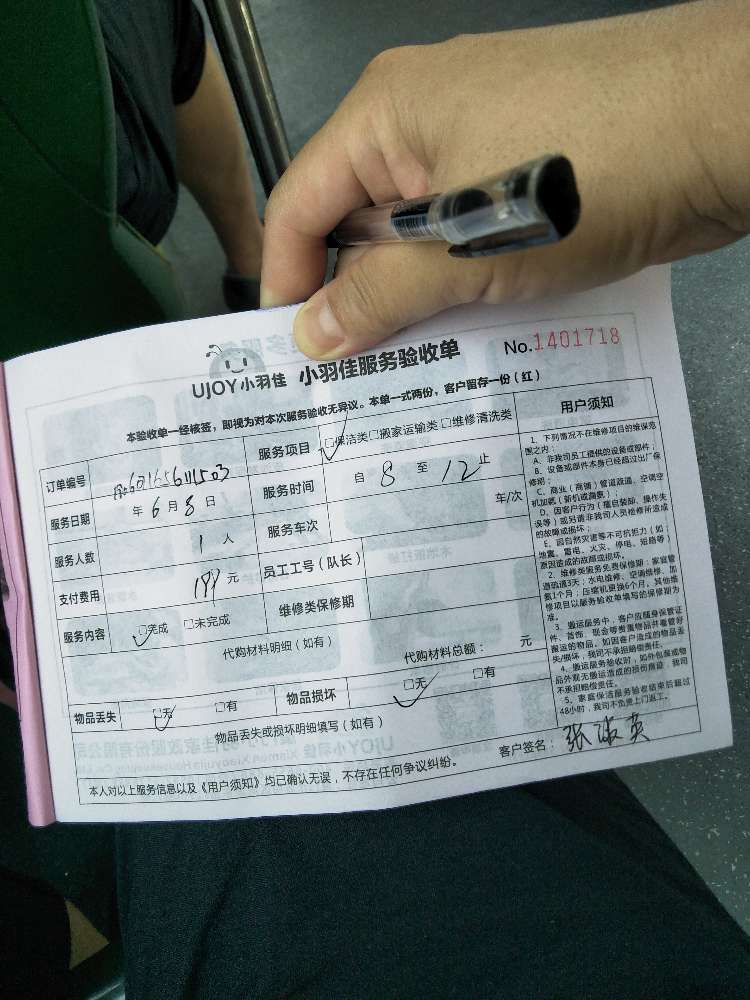 UJOY小羽佳 小羽佳服务验收单 No.1401718
本验收单一经核签，即视为对本次服务验收无异议。本单一式两份，客户留存一份（红）
订单编号
服务项目 □保洁类□搬家运输类□维修清洗类
服务日期 年 6 月 8 日
服务时间 自 8 至 12 止
服务人数 1 人
服务车次 车/次
支付费用 元
员工工号（队长）
服务内容 □完成 □未完成
维修类保修期
代购材料明细（如有） 代购材料总额： 元
物品丢失 □无 □有 物品损坏 □无 □有
物品丢失或损坏明细填写（如有）
本人对以上服务信息以及《用户须知》均已确认无误，不存在任何争议纠纷。 客户签名：
用户须知
1、下列情况不在维修项目的维保范
围之内：
A、非我司员工提供的设备或部件；
B、设备或部件本身已经超过出厂保
修期；
C、商业（商铺）管道疏通、空调空
机加氟（新机或漏氟）；
D、因客户行为（擅自装卸、操作失
误等）或另请非我司人员检修所造成
的故障或损坏；
E、因自然灾害等不可抗拒力（如：
地震、雷电、火灾、停电、短路等）
原因造成的故障或损坏。
2、维修类服务免费保修期：家庭管
道疏通3天；水电维修、空调维修、加
氟1个月；压缩机更换6个月。其他维
修项目以服务验收单填写的保修期为
准。
3、搬运服务中，客户应随身保管证
件、首饰、现金等贵重物品并看管好
搬运的物品。如因客户造成的物品丢
失/损坏，我司不承担赔偿责任。
4、搬运服务验收时，如外包装或物
品外观无搬运造成的损伤痕迹，我司
不承担赔偿责任。
5、家庭保洁服务验收结束后超过
48小时，我司不负责上门返工。